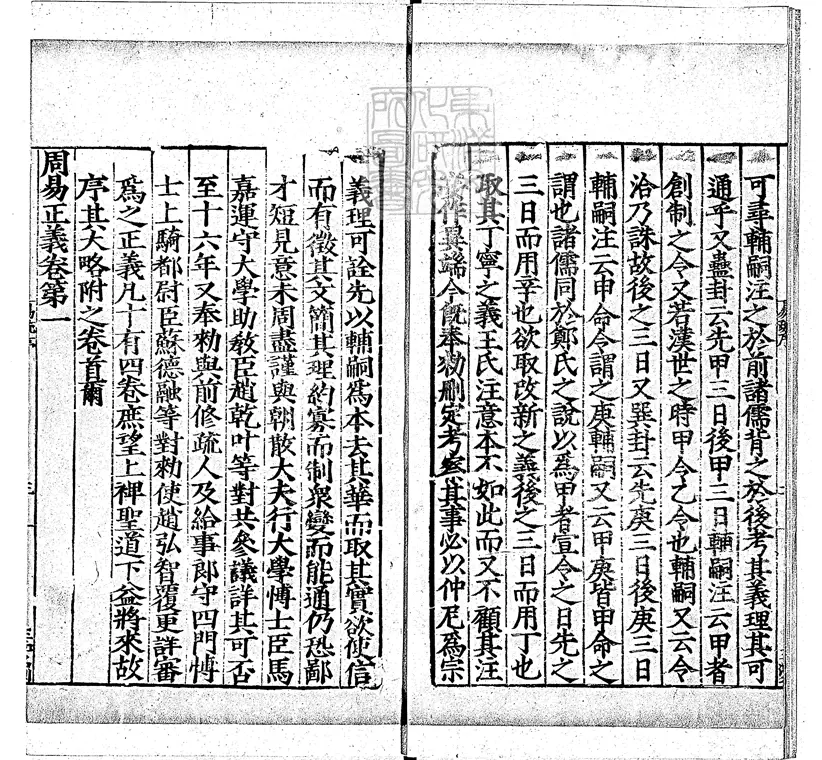 可尋輔嗣注之於前諸儒背之於後考其義理其可
通乎又蠱卦云先甲三日後甲三日輔嗣注云甲者
創制之令又若漢世之時甲令乙令也輔嗣又云令
洽乃誅故後之三日又巽卦云先庚三日後庚三日
輔嗣注云申命令謂之庚輔嗣又云甲庚皆申命之
謂也諸儒同於鄭氏之說以爲甲者宣令之日先之
三日而用辛也欲取改新之義後之三日而用丁也
取其丁寧之義王氏注意本不如此而又不顧其注
妄作異端今旣奉勑刪定考察其事必以仲尼爲宗
義理可詮先以輔嗣爲本去其華而取其實欲使信
而有徵其文簡其理約寡而制衆變而能通仍恐鄙
才短見意未周盡謹與朝散大夫行大學愽士臣馬
嘉運守大學助敎臣趙乾叶等對共參議詳其可否
至十六年又奉勑與前修疏人及給事郎守四門愽
士上騎都尉臣蘇德融等對勑使趙弘智覆更詳審
爲之正義凡十有四卷庶望上裨聖道下益將來故
序其大略附之卷首爾
周易正義卷第一